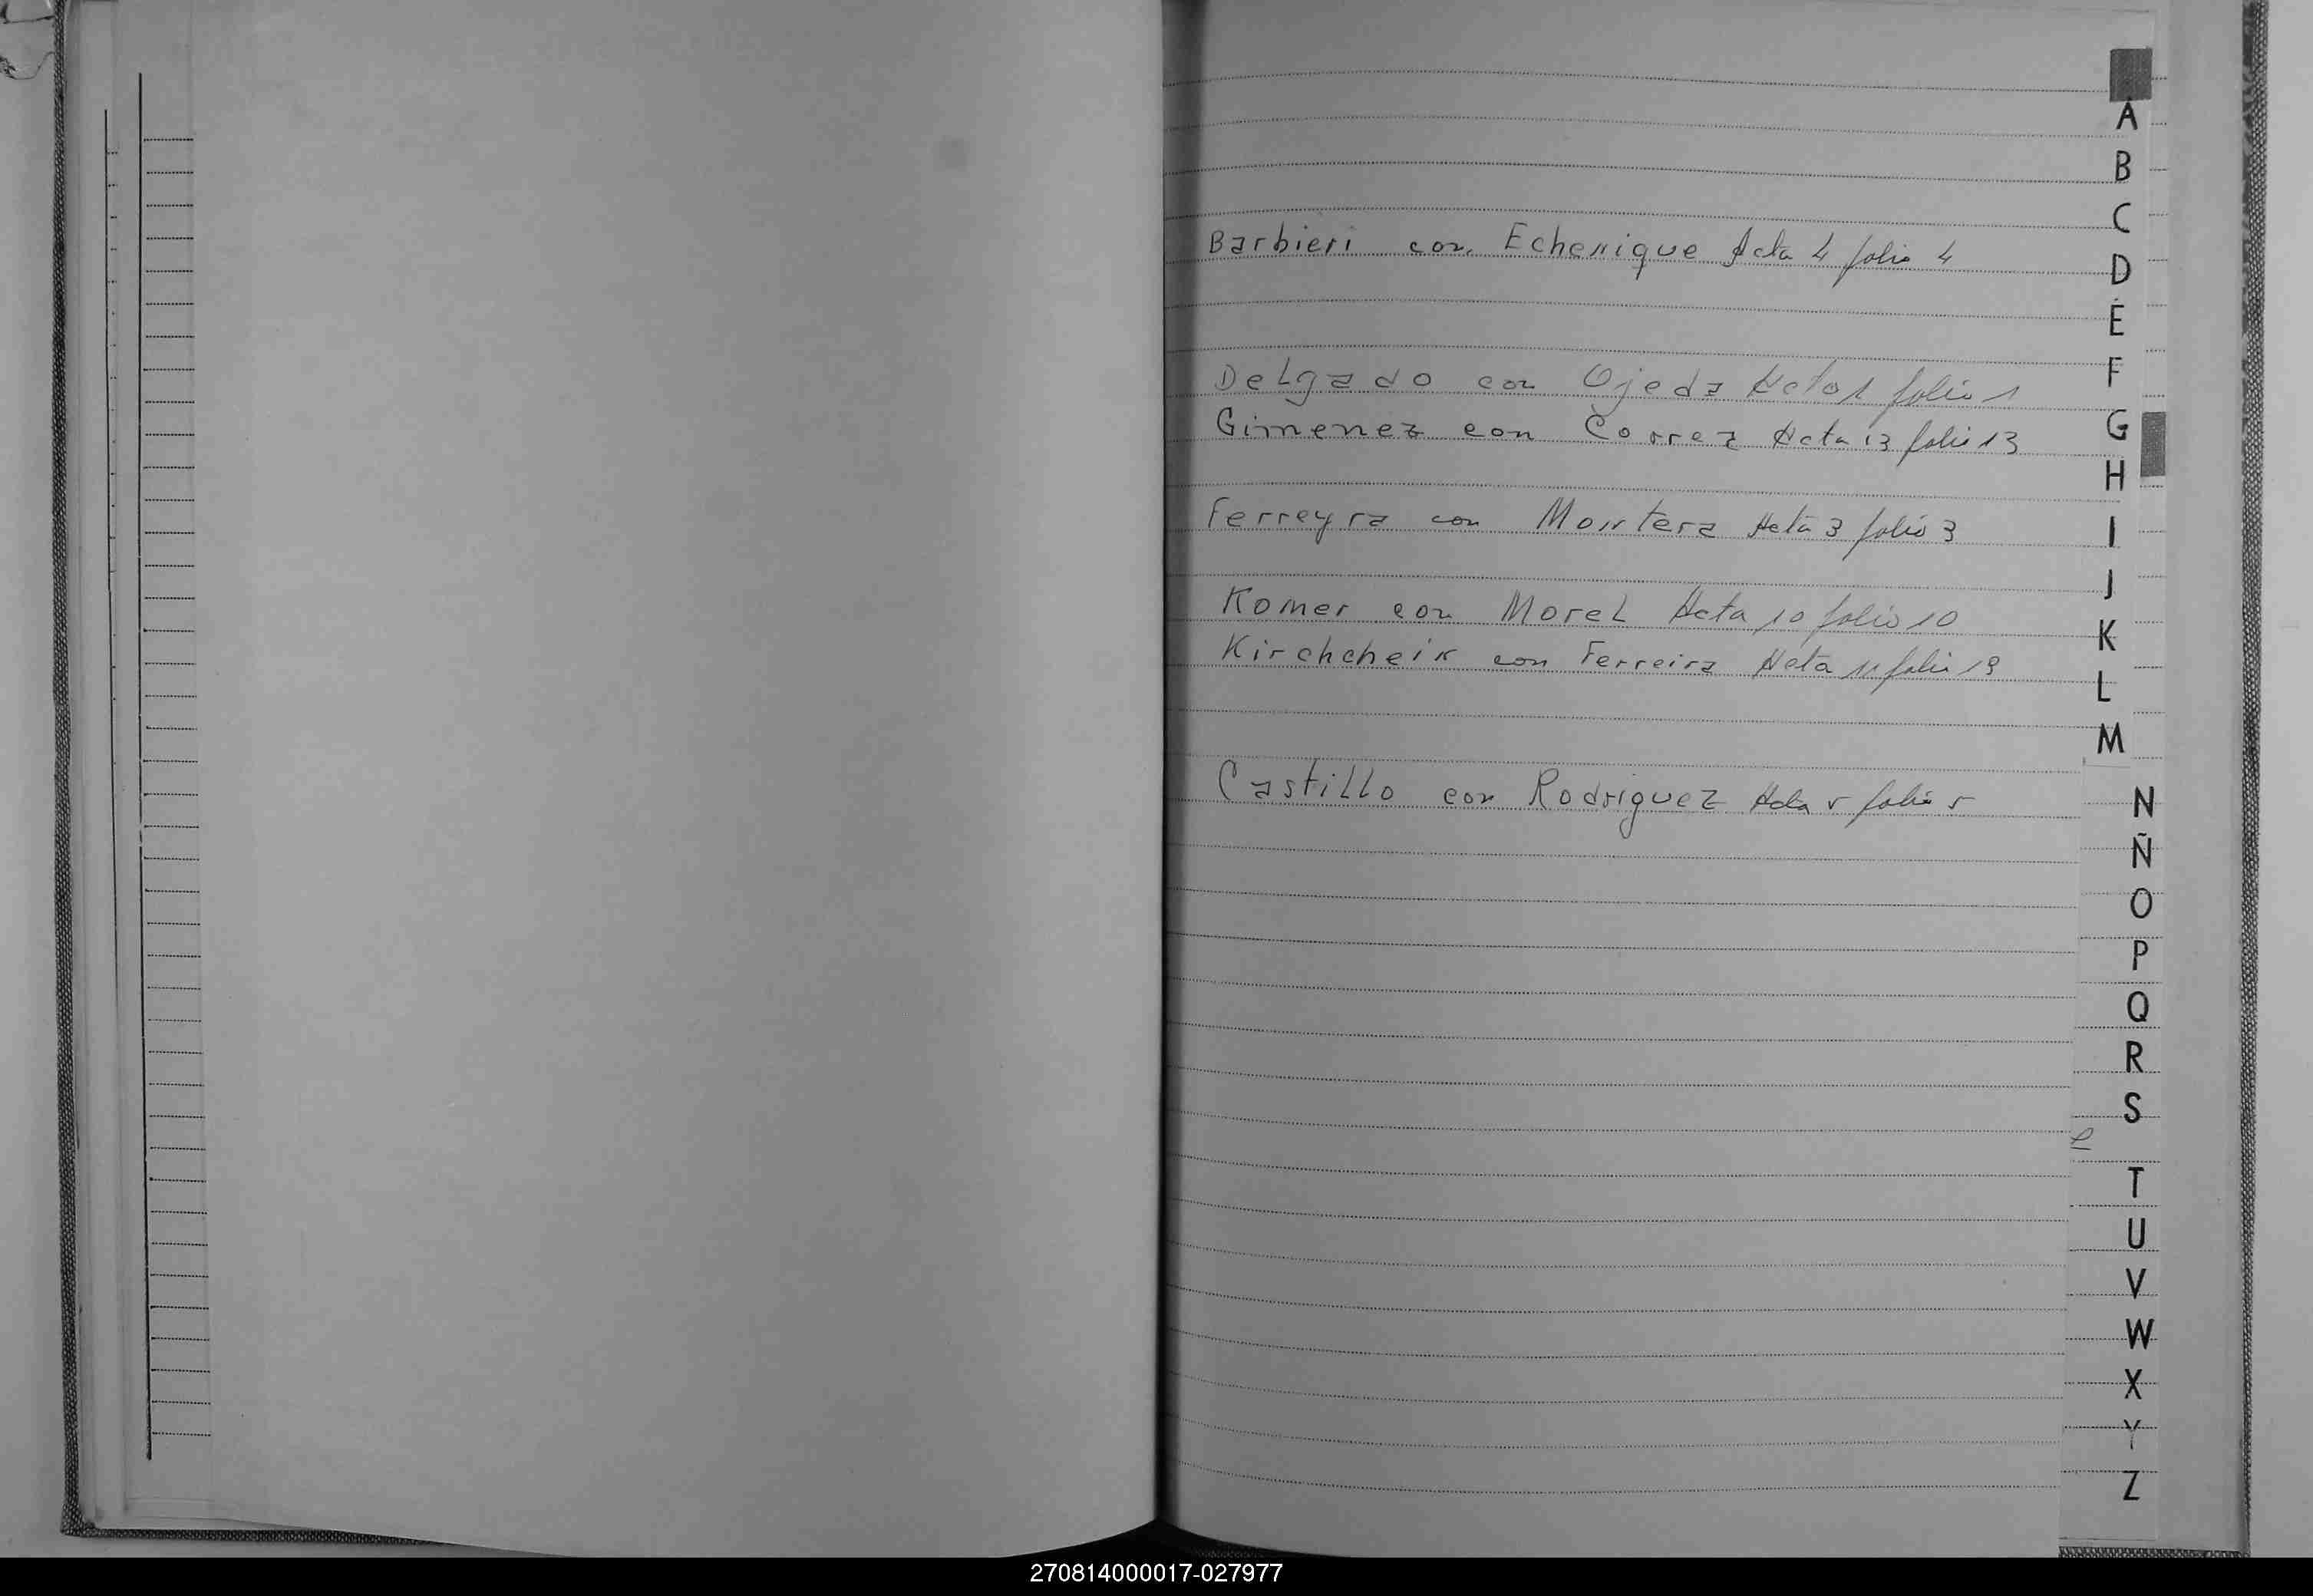 Barbieri con Echenique Acta 4 folio 4
Delgado con Ojeda Acta 1 folio 1
Gimenez con Correa Acta 13 folio 13
Ferreyra con Montera Acta 3 folio 3
Komer con Morel Acta 10 folio 10
Kirchcheik con Ferreira Acta 11 folio
Castillo con Rodriguez Acta 5 folio 5
A
B
C
D
E
F
G
H
I
J
K
L
M
N
Ñ
O
P
Q
R
S
T
U
V
W
X
Y
Z
270814000017-027977